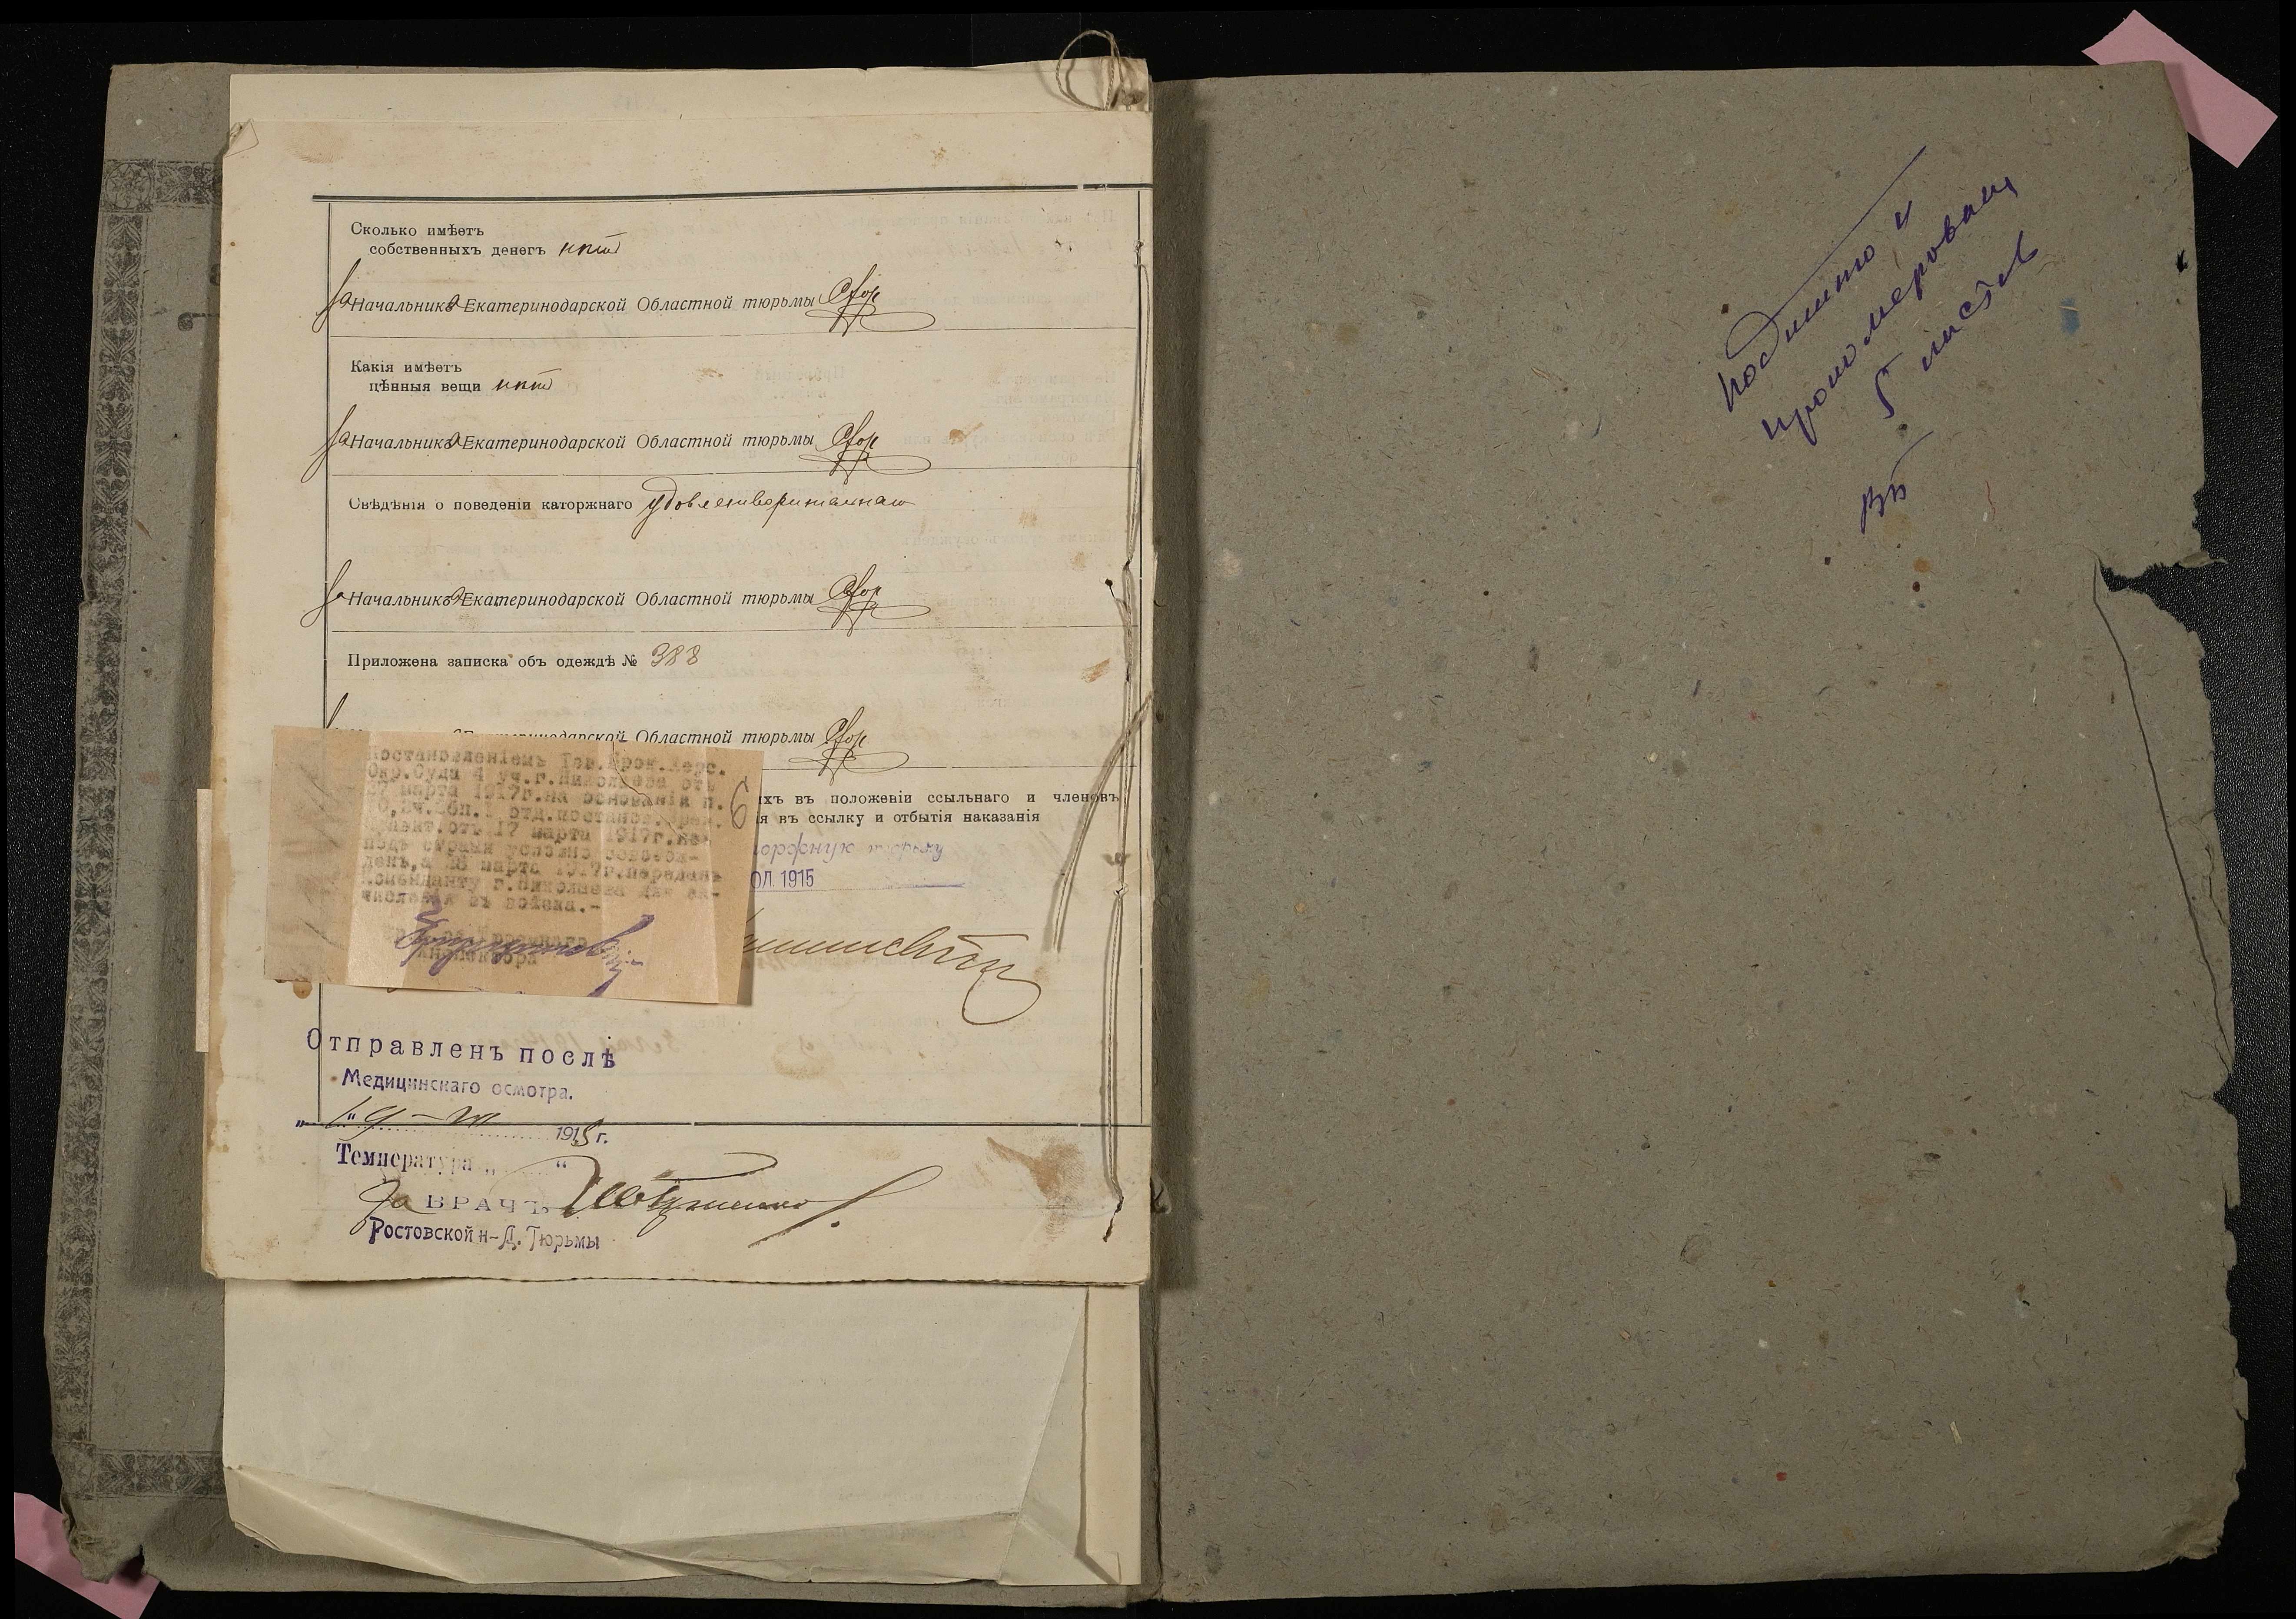 Сколько имѣетъ
собственныхъ денегъ нѣтъ
За Начальника Екатеринодарской Областной тюрьмы
Какія имѣетъ
цѣнныя вещи нѣтъ
За Начальника Екатеринодарской Областной тюрьмы
Свѣдѣнія о поведеніи каторжнаго удовлетворительнаго
За Начальника Екатеринодарской Областной тюрьмы
Приложена записка объ одеждѣ № 388
Екатеринодарской Областной тюрьмы
Постановленіемъ Тов. Прок. Херс.
Окр. Суда 4 уч. г. Николаева отъ
27 марта 1917г. на основаніи п.
отд. постанов. Врем.
отъ 17 марта 1917г. изъ
подъ стражи условно освобож-
денъ, а 28 марта 1917г. переданъ
Коменданту г. Николаева для за-
численія въ войска.-
Инспектора
6
ихъ въ положеніи ссыльнаго и членовъ
я въ ссылку и отбытія наказанія
оржную тюрьму
ОЛ. 1915
Отправленъ послѣ
Медицинскаго осмотра.
„ 19 - VII 1915 г.
Температура „ “
За ВРАЧЪ
Ростовской н-Д. Тюрьмы
Подшито и
пронумеровано
5 листов